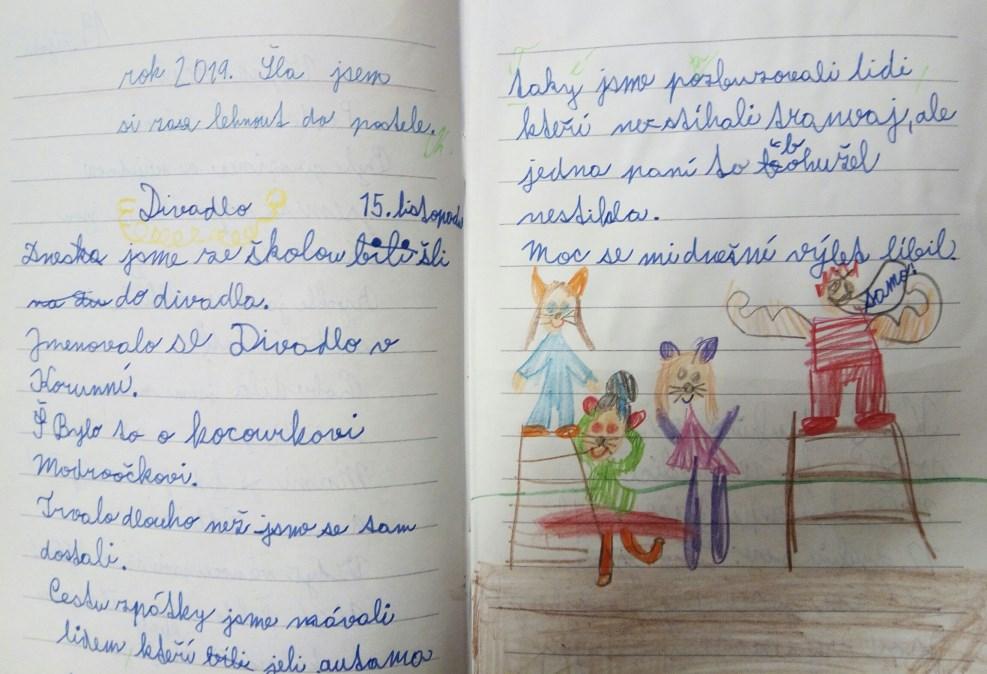 rok 2019. Šla jsem
si zase lehnout do postele.
Divadlo 15. listopadu
Dneska jsme ze školou bili šli
do divadla.
Jmenovalo se Divadlo v
Korunní.
Bylo to o kocourkovi
Modroočkovi.
Trvalo dlouho než jsme se tam
dostali.
Cestu zpátky jsme mávali
lidem kteří bili jeli automa
taky jsme pozbuzovali lidi
kteří nestíhali tranvaj, ale
jedna paní to bohužel
nestihla.
Moc se mi dnešní výlet líbil.
samos